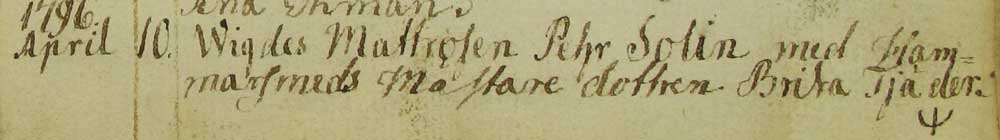 1796.
April 10. Wigdes Mattrosen Pehr Solin med Ham=
marsmeds Mästare dottren Brita Tjäder.